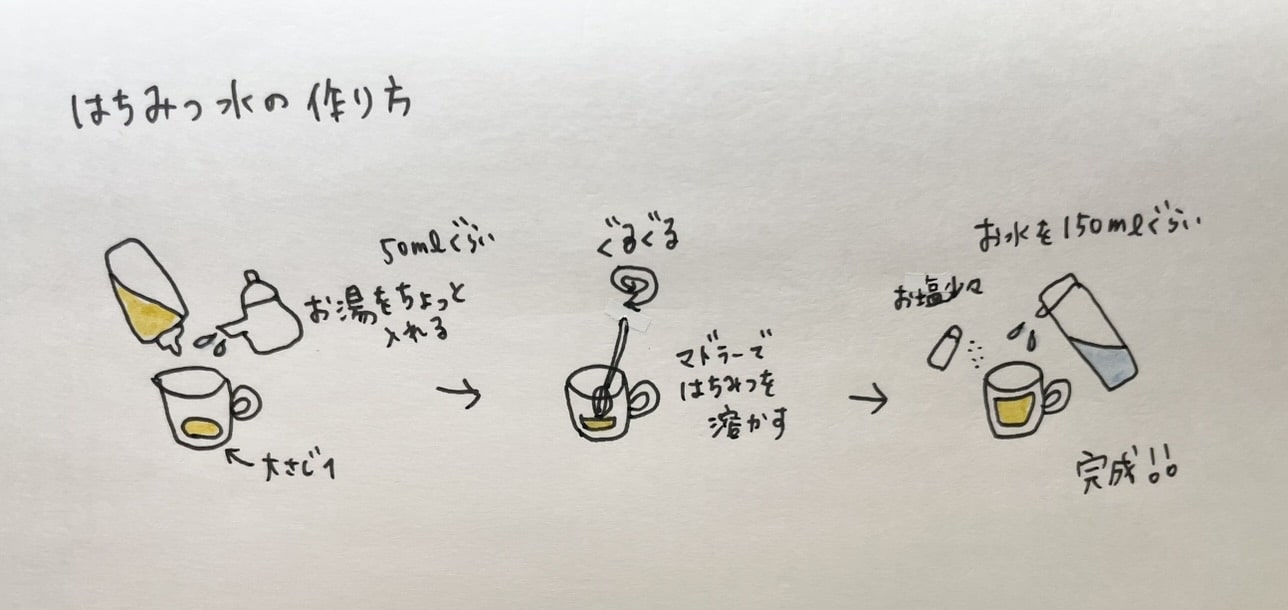 はちみつ水の作り方
50mlぐらい
お湯をちょっと
入れる
大さじ1
ぐるぐる
マドラーで
はちみつを
溶かす
お水を150mlぐらい
お塩少々
完成!!